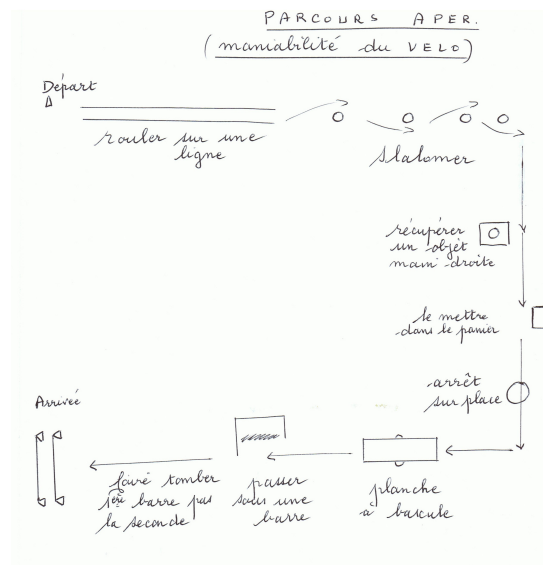 PARCOURS APER.
(maniabilité du VELO)
Départ
rouler sur une
ligne
slalomer
récupérer
un objet
main droite
le mettre
dans le panier
arrêt
sur place
planche
à bascule
passer
sous une
barre
faire tomber
1ère barre pas
la seconde
Arrivée